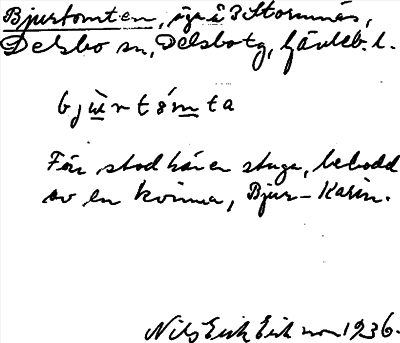 Bjurtomten, äga i 3 Stormnäs,
Delsbo sn, Delsbo tg, Gävleb. l.
bjùrtómta
Förr stod här en stuga, bebodd
av en kvinna, Bjur-Karin.
Nils Erik Eriksson 1936.